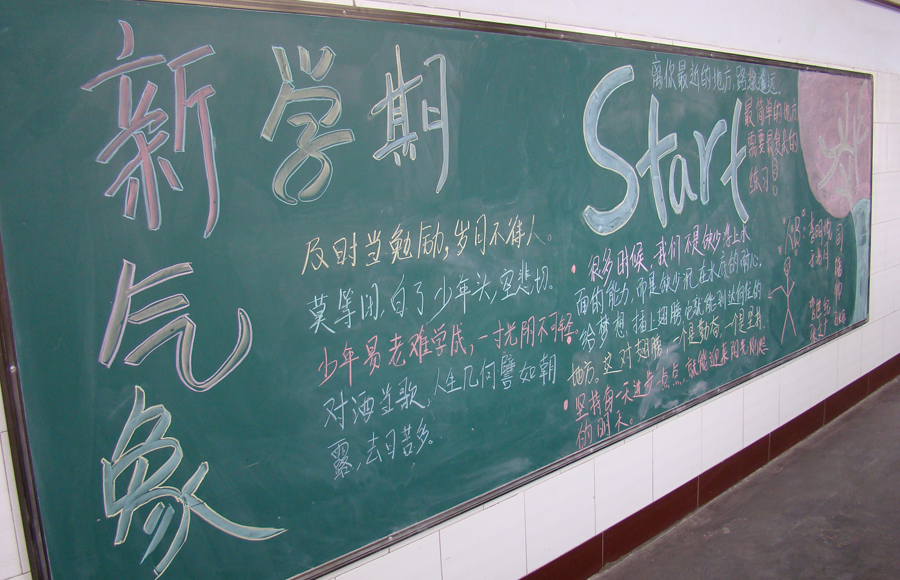 新学期
气
象
及时当勉励，岁月不待人。
莫等闲，白了少年头，空悲切。
少年易老难学成，一寸光阴不可轻。
对酒当歌，人生几何譬如朝
露，去日苦多。
Start
离你最近的地方，路途遥远，
最简单的地方
需要最复杂的
练习！
很多时候，我们不是缺少浮上水
面的能力，而是缺少沉在水底的耐心，
给梦想插上翅膀
地方。这对翅膀，一个是勤奋，一个是坚持，
坚持每一天进步一点点，就能迎来阳光灿烂
的明天。